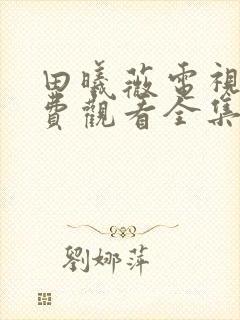 田曦薇電視
費觀看全集
劉娜萍